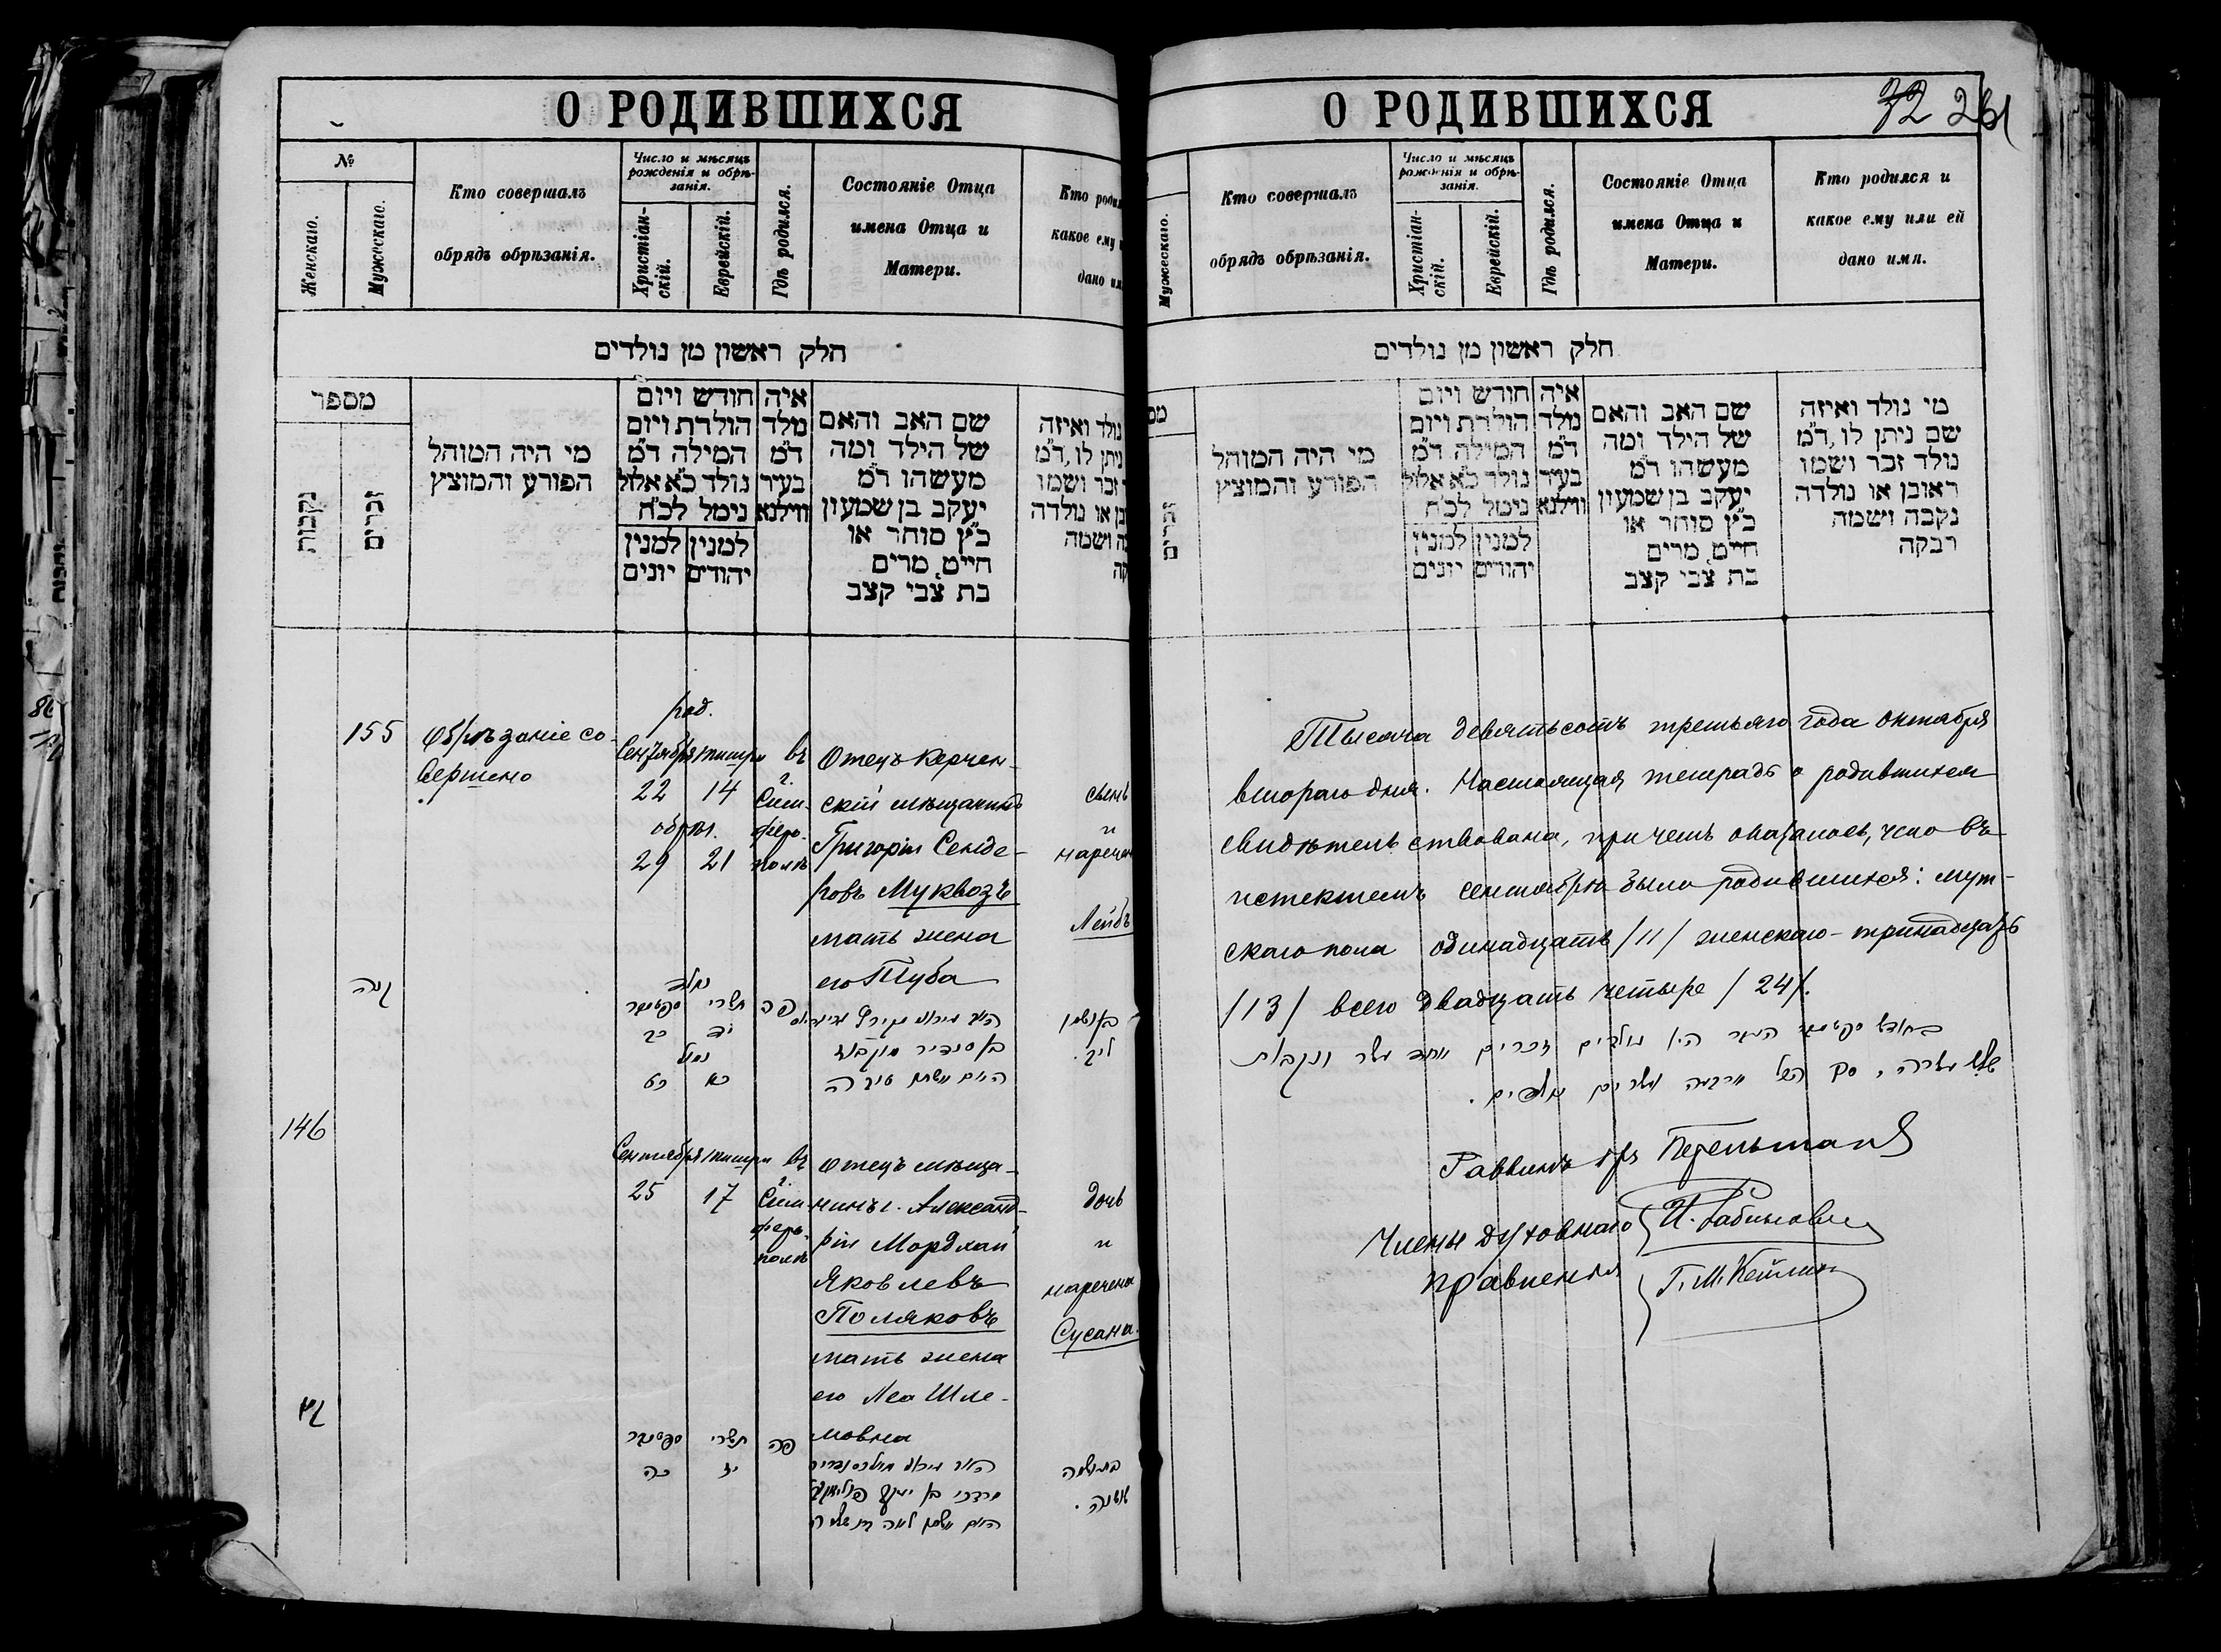 О РОДИВШИХСЯ
№
Женскаго.
Мужескаго.
Кто совершалъ
обрядъ обрѣзанія.
Число и мѣсяцъ
рожденія и обрѣ-
занія.
Христіан-
скій.
Еврейскій.
Гдѣ родился.
Состояніе Отца
имена Отца и
Матери.
Кто
какое ему
дано
חלק ראשון מן נולדים
מספר
נקבות
זכרים
מי היה המוהל
הפורע והמוצץ
חודש ויום
הולדת ויום
המילה ד״מ
נולד כ״א אלול
נימל לכ״ח
למנין
יהודים
למנין
יונים
איה
נולד
ד״מ
בעיר
ווילנא
שם האב והאם
של הילד ומה
מעשהו ד״מ
יעקב בן שמעון
כ״ץ סוחר או
חייט, מרים
בת צבי קצב
נולד ואיזה
ניתן לו, ד״מ
זכר ושמו
או נולדה
ושמה
155
Обрѣзаніе со-
вершено
род.
Сентября тишри
22 14
обрѣз.
29 21
въ
г.
Сим-
феро-
полѣ
Отецъ Керчен-
скій мѣщанинъ
Григорій Сенде-
ровъ Муквозъ
мать жена
его Туба
сынъ
и
нареченъ
Лейбъ
קנה
נולד
ספטמבר תשרי פה
כב יד
נמול
כט כא
בן סנדיר
האם אשתו טובה
בן ושמו
ליב.
146
Сентября тишри
25 17
въ
г.
Сим-
феро-
полѣ
Отецъ мѣща-
нинъ г. Александ-
ріи Мордхай
Яковлевъ
Поляковъ
мать жена
его Леа Шле-
мовна
дочь
и
наречена
Сусана.
ספטמבר תשרי פה
כה יז
מרדכי בן יעקב פוליאקוב
האם אשתו לאה בת שלמה
בת ושמה
שושנה.
О РОДИВШИХСЯ
72 261
Мужескаго.
Кто совершалъ
обрядъ обрѣзанія.
Число и мѣсяцъ
рожденія и обрѣ-
занія.
Христіан-
скій.
Еврейскій.
Гдѣ родился.
Состояніе Отца
имена Отца и
Матери.
Кто родился и
какое ему или ей
дано имя.
חלק ראשון מן נולדים
זכרים
מי היה המוהל
הפורע והמוצץ
חודש ויום
הולדת ויום
המילה ד״מ
נולד כ״א אלול
נימל לכ״ח
למנין
יהודים
למנין
יונים
איה
נולד
ד״מ
בעיר
ווילנא
שם האב והאם
של הילד ומה
מעשהו ד״מ
יעקב בן שמעון
כ״ץ סוחר או
חייט, מרים
בת צבי קצב
מי נולד ואיזה
שם ניתן לו, ד״מ
נולד זכר ושמו
ראובן או נולדה
נקבה ושמה
רבקה
Тысяча девятьсотъ третьяго года октября
второго дня. Настоящая тетрадь о родившихся
свидѣтельствована, при чемъ оказалось, что въ
истекшемъ сентябрѣ было родившихся: муж-
скаго пола одинадцать /11/ женскаго - тринадцать
/13/ всего двадцать четыре /24/.
בחודש ספטמבר העבר היו נולדים זכרים אחד עשר ונקבות
שלש עשרה, סך הכל ארבעה ועשרים נולדים.
Раввинъ Перельманъ
Члены духовнаго
правленія
И. Рабиновичъ